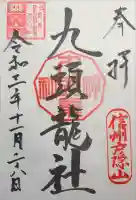 奉拝
九頭龍社
信州戸隠山
令和二年十一月二八日